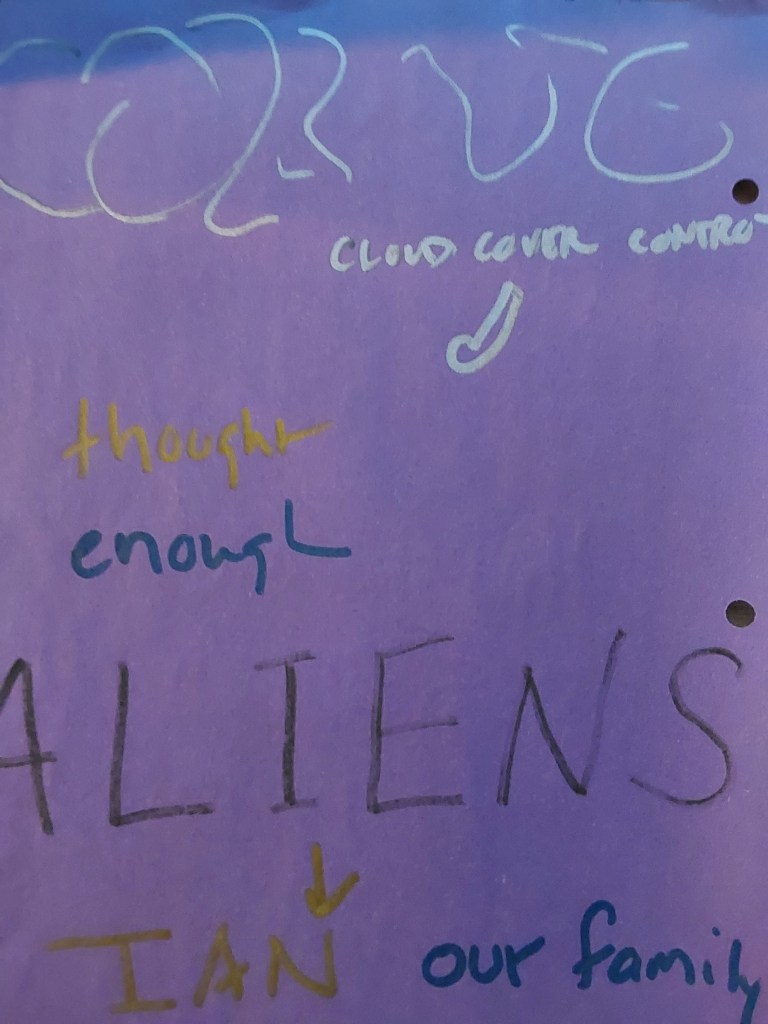 CLOUD COVER CONTRO
thought
enough
ALIENS
IAN our family